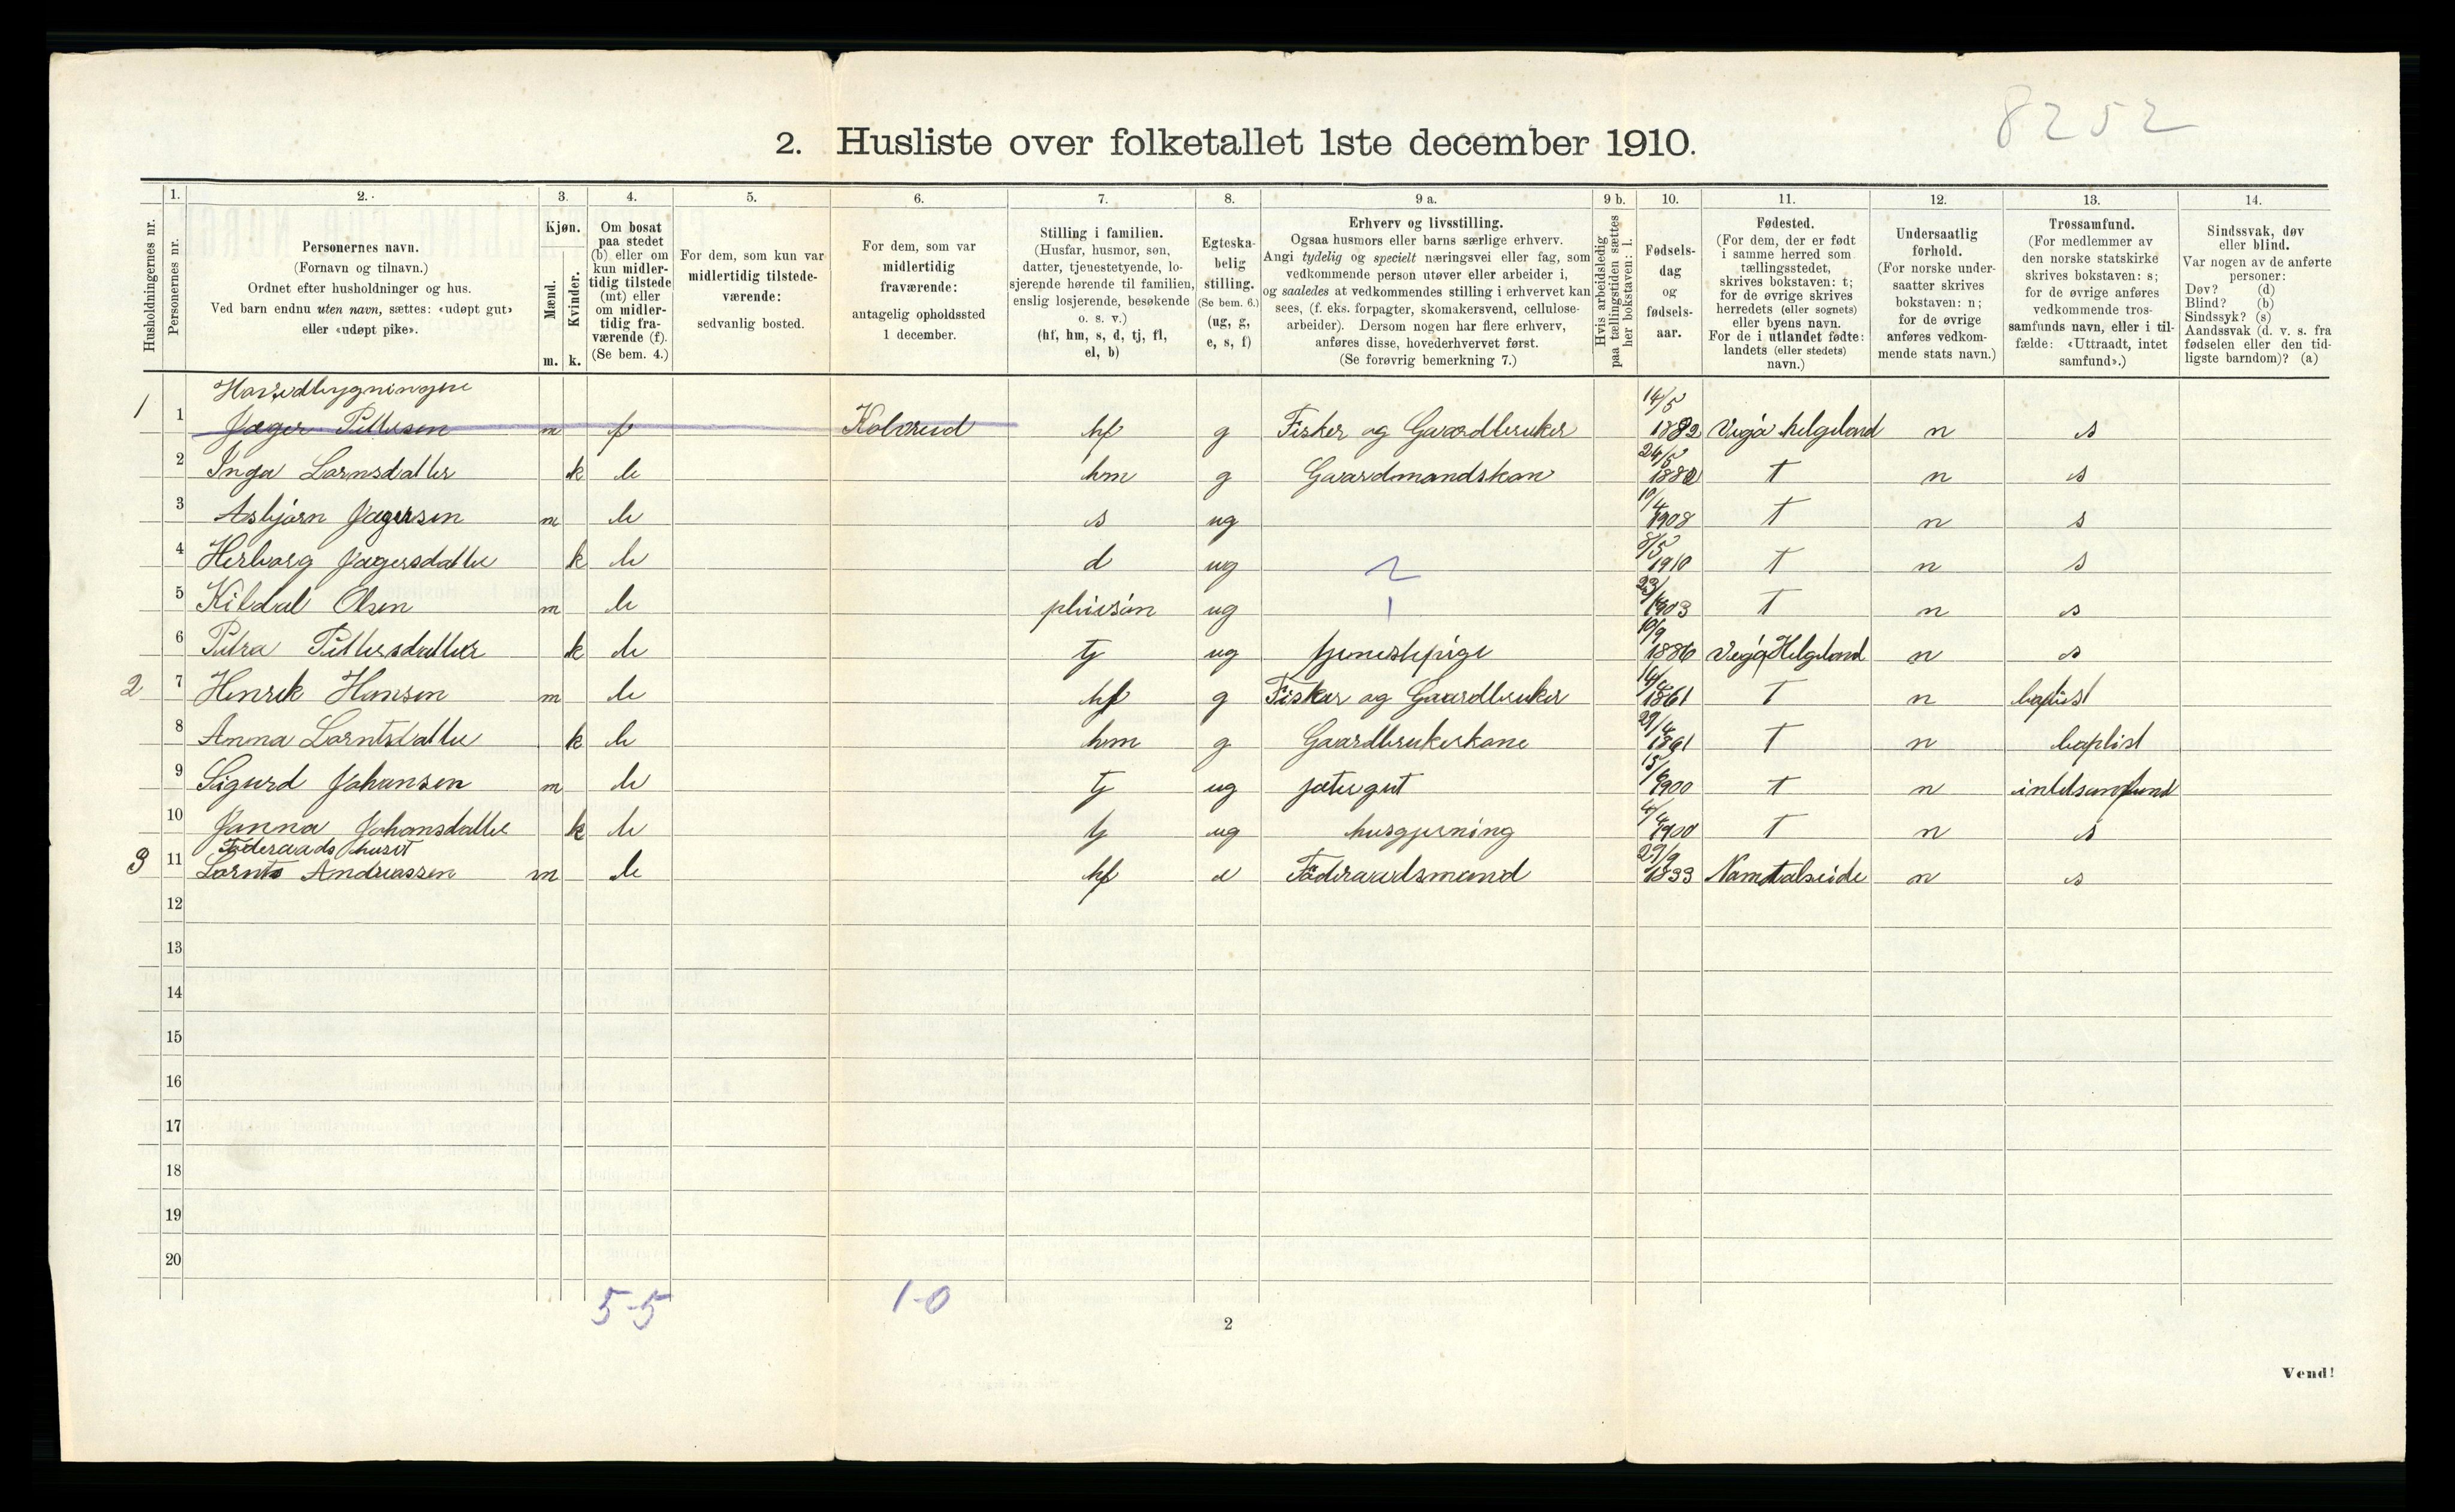 8252
2. Husliste over folketallet 1ste december 1910.
1. 2. 3. 4. 5. 6. 7. 8. 9 a. 9 b. 10. 11. 12. 13. 14.
Husholdningernes nr.
Personernes nr.
Personernes navn.
(Fornavn og tilnavn.)
Ordnet efter husholdninger og hus.
Ved barn endnu uten navn, sættes: «udøpt gut»
eller «udøpt pike».
Kjøn.
Mænd.
Kvinder.
m. k.
Om bosat
paa stedet
(b) eller om
kun midler-
tidig tilstede
(mt) eller
om midler-
tidig fra-
værende (f).
(Se bem. 4.)
For dem, som kun var
midlertidig tilstede-
værende:
sedvanlig bosted.
For dem, som var
midlertidig
fraværende:
antagelig opholdssted
1 december.
Stilling i familien.
(Husfar, husmor, søn,
datter, tjenestetyende, lo-
sjerende hørende til familien,
enslig losjerende, besøkende
o. s. v.)
(hf, hm, s, d, tj, fl,
el, b)
Egteska-
belig
stilling.
(Se bem. 6.)
(ug, g,
e, s, f)
Erhverv og livsstilling.
Ogsaa husmors eller barns særlige erhverv.
Angi tydelig og specielt næringsvei eller fag, som
vedkommende person utøver eller arbeider i,
og saaledes at vedkommendes stilling i erhvervet kan
sees, (f. eks. forpagter, skomakersvend, cellulose-
arbeider). Dersom nogen har flere erhverv,
anføres disse, hovederhvervet først.
(Se forøvrig bemerkning 7.)
Hvis arbeidsledig
paa tællingstiden sættes
her bokstaven: l.
Fødsels-
dag
og
fødsels-
aar.
Fødested.
(For dem, der er født
i samme herred som
tællingsstedet,
skrives bokstaven: t;
for de øvrige skrives
herredets (eller sognets)
eller byens navn.
For de i utlandet fødte:
landets (eller stedets)
navn.)
Undersaatlig
forhold.
(For norske under-
saatter skrives
bokstaven: n;
for de øvrige
anføres vedkom-
mende stats navn.)
Trossamfund.
(For medlemmer av
den norske statskirke
skrives bokstaven: s;
for de øvrige anføres
vedkommende tros-
samfunds navn, eller i til-
fælde: «Uttraadt, intet
samfund».)
Sindssvak, døv
eller blind.
Var nogen av de anførte
personer:
Døv? (d)
Blind? (b)
Sindssyk? (s)
Aandssvak (d. v. s. fra
fødselen eller den tid-
ligste barndom)? (a)
Hovedbygningen
1 1 Jæger Pettersen m f Kolvreid hf g Fisker og Gaardbruker 14/5 1882 Vega helgeland n s
2 Inga Lornsdatter k b hm g Gaardmandskone 24/5 1882 t n s
3 Asbjørn Jægersen m b s ug 10/4 1908 t n s
4 Herborg Jægersdatter k b d ug 2 8/5 1910 t n s
5 Kildal Olsen m b pleiesøn ug 1 1903 t n s
6 Petra Pettersdatter k b tj ug tjenestepige 10/9 1886 Vega Helgeland n s
2 7 Henrik Hansen m b hf g Fisker og Gaardbruker 1861 t n baptist
8 Anna Lorntsdatter k b hm g Gaardbrukerkone 1861 t n baptist
9 Sigurd Johansen m b tj ug jætergut 1900 t n intetsamfund
10 Janna Johansdatter k b tj ug husgjerning 1900 t n s
Føderaads huset
3 11 Lornts Andreassen m b hf e Føderaadsmand 27/9 1833 Namdalseide n s
12
13
14
15
16
17
18
19
20
5-5 1-0
2
Vend!